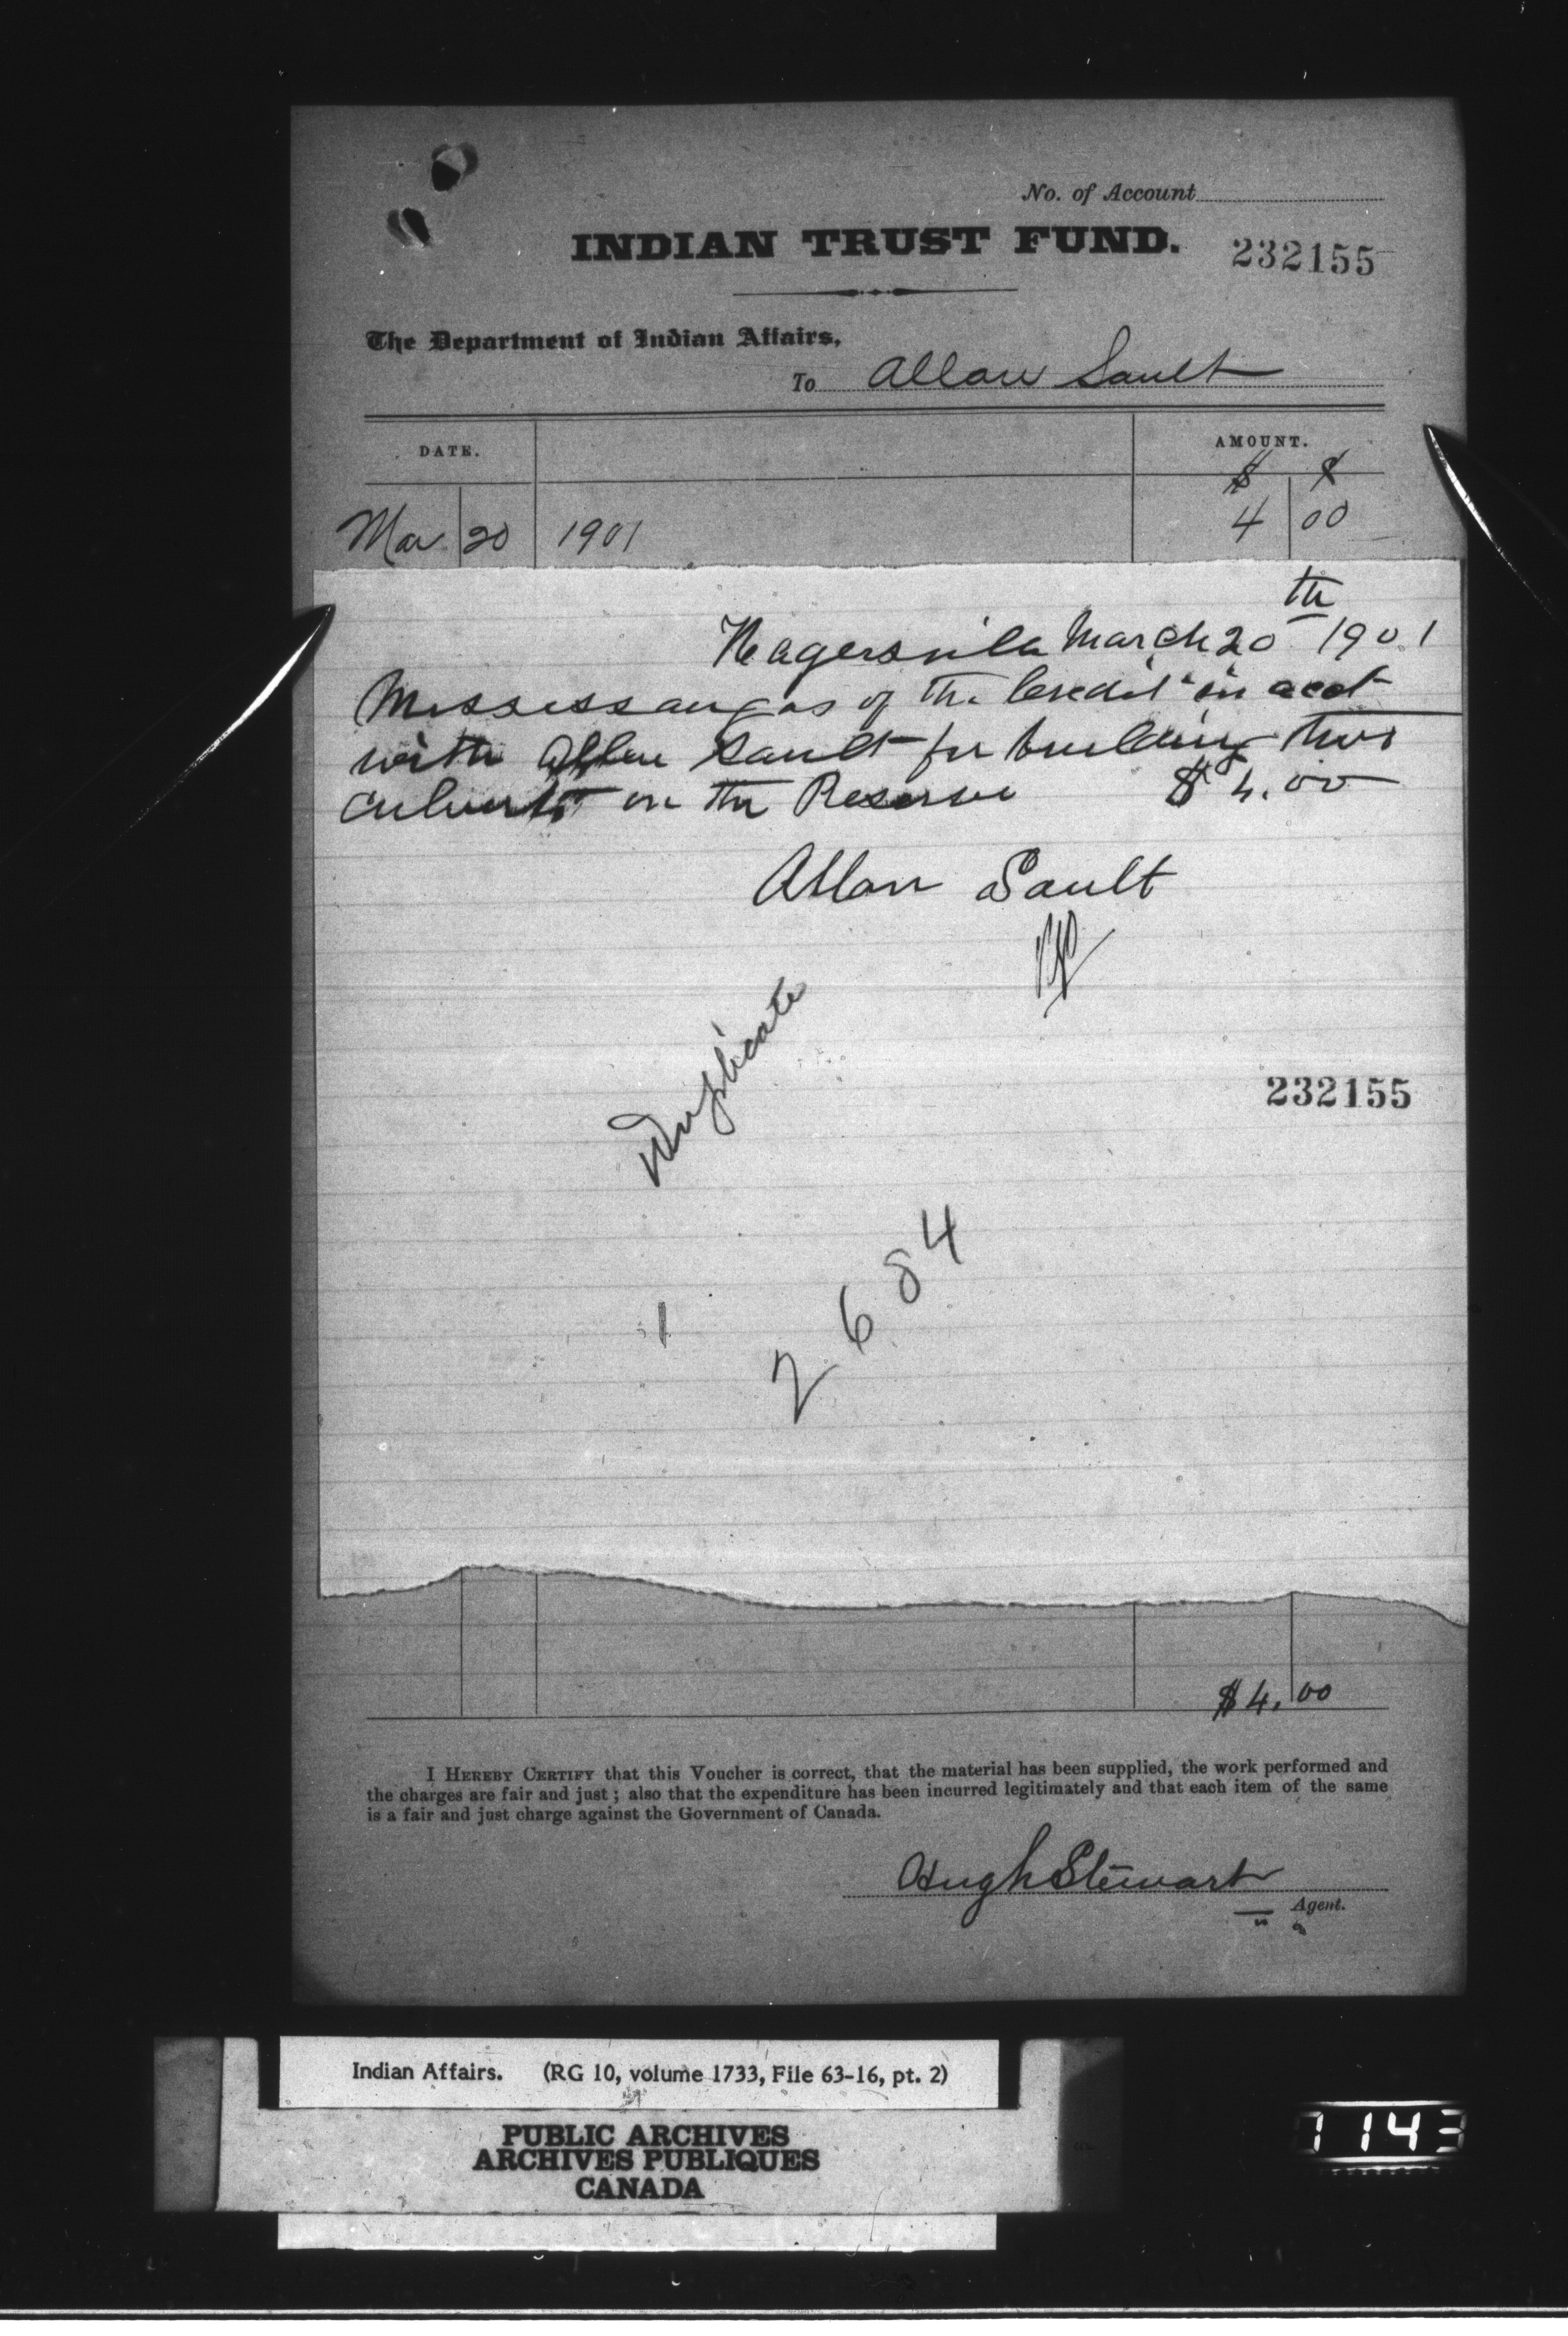 No. of Account
INDIAN TRUST FUND.
232155
The Department of Indian Affairs,
To Allan Sault
DATE.
AMOUNT.
$ ¢
Mar 20 1901 4 00
Hagersville March 20th 1901
Mississaugas of the Credit in acct
with Allan Sault for building two
culverts on the Reserve $4.00
Allan Sault
Duplicate
232155
1
2684
$4.00
I HEREBY CERTIFY that this Voucher is correct, that the material has been supplied, the work performed and
the charges are fair and just; also that the expenditure has been incurred legitimately and that each item of the same
is a fair and just charge against the Government of Canada.
Hugh Stewart
Agent.
Indian Affairs. (RG 10, volume 1733, File 63-16, pt. 2)
PUBLIC ARCHIVES
ARCHIVES PUBLIQUES
CANADA
1143